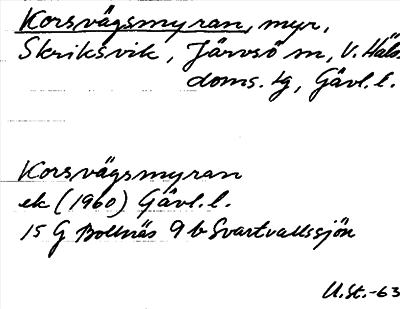 Korsvägsmyran, myr,
Skriksvik, Järvsö sn, V. Häls
doms. tg, Gävl. l.
Korsvägsmyran
ek (1960) Gävl. l.
15 G Bollnäs 9 b Svartvallssjön
U.St.-63